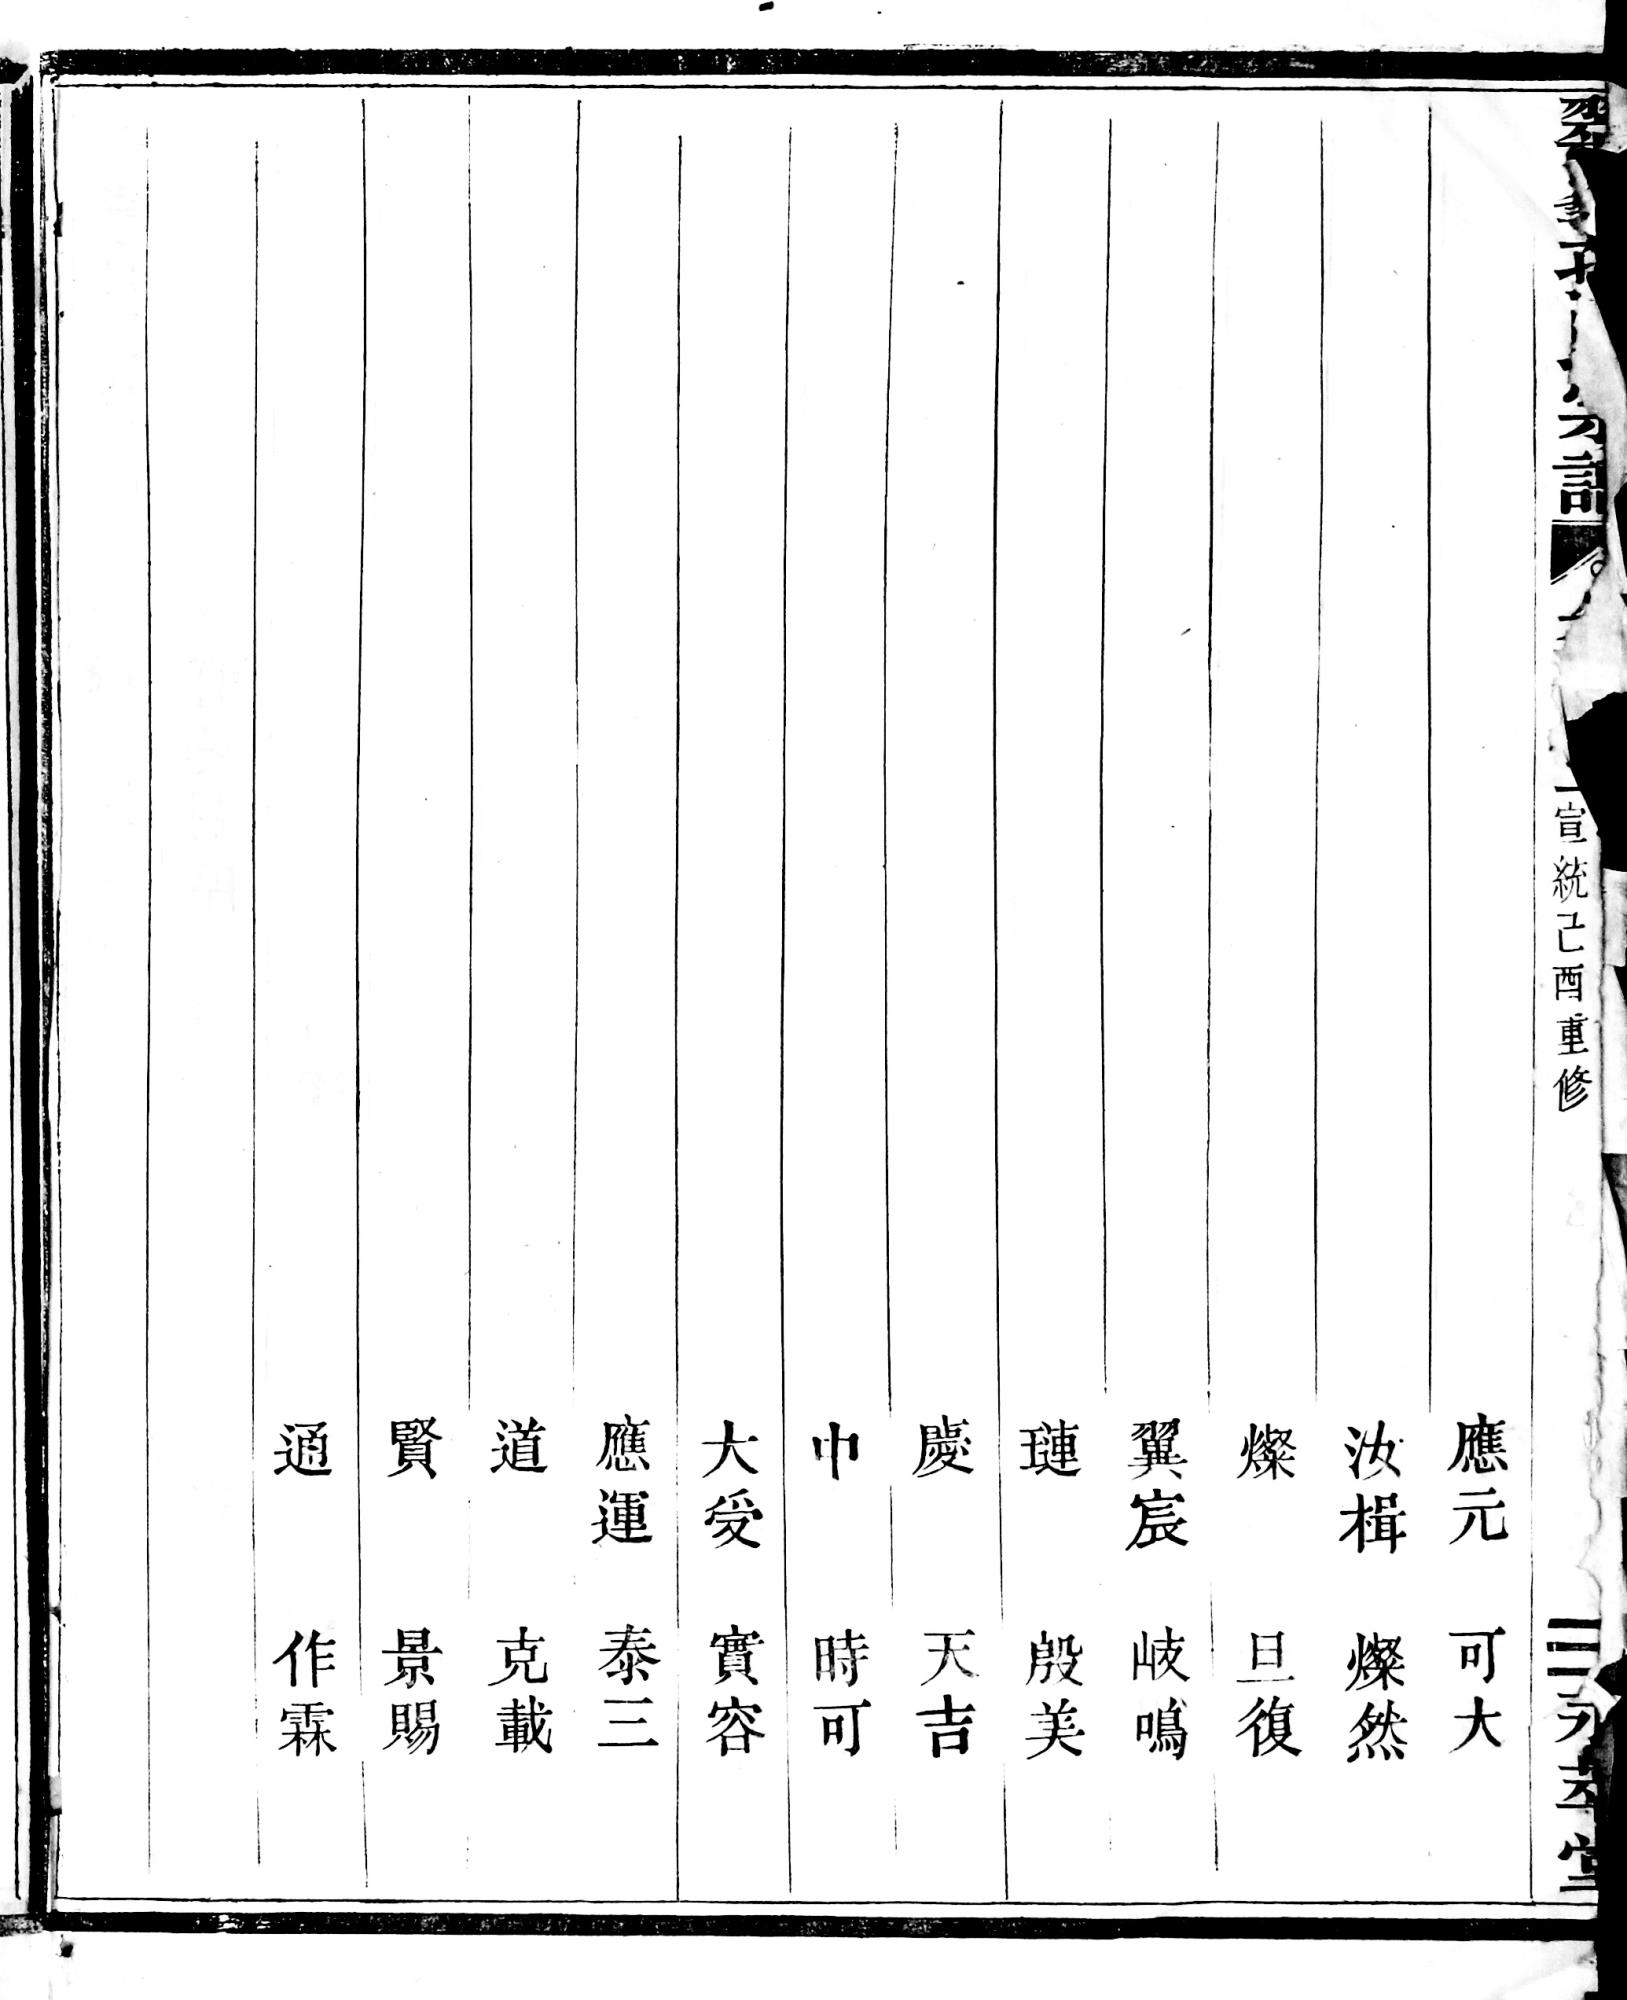 宣統己酉重修
永萃堂
應元 可大
汝楫 燦然
燦 旦復
翼宸 岐鳴
璉 殷美
慶 天吉
巾 時可
大受 實容
應運 泰三
道 克載
賢 景賜
通 作霖